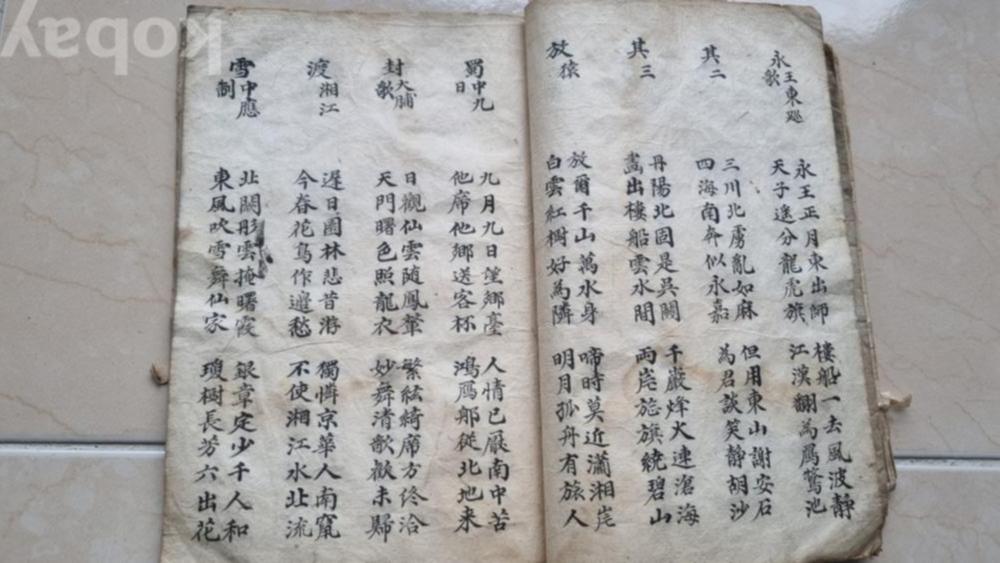 永王東廵歌
永王正月東出師
天子遙分龍虎旗
樓船一去風波靜
江漢翻為鴈鶩池
其二
三川北虜亂如麻
四海南奔似永嘉
但用東山謝安石
為君談笑靜胡沙
其三
丹陽北固是吳關
畵出樓船雲水間
千巖烽火連滄海
兩岸旌旗繞碧山
放猿
放爾千山萬水身
白雲紅樹好為隣
啼時莫近瀟湘岸
明月孤舟有旅人
蜀中九日
九月九日望鄉臺
他席他鄉送客杯
人情已厭南中苦
鴻鴈那從北地來
封大脯歌
日觀仙雲隨鳳輦
天門曙色照龍衣
繁絃綺席方終洽
妙舞清歌歡未歸
渡湘江
遲日園林悲昔游
今春花鳥作邉愁
獨憐京華人南竄
不使湘江水北流
雪中應制
北闕彤雲掩曙霞
東風吹雪舞仙家
銀章定少千人和
瓊樹長芳六出花
kobay